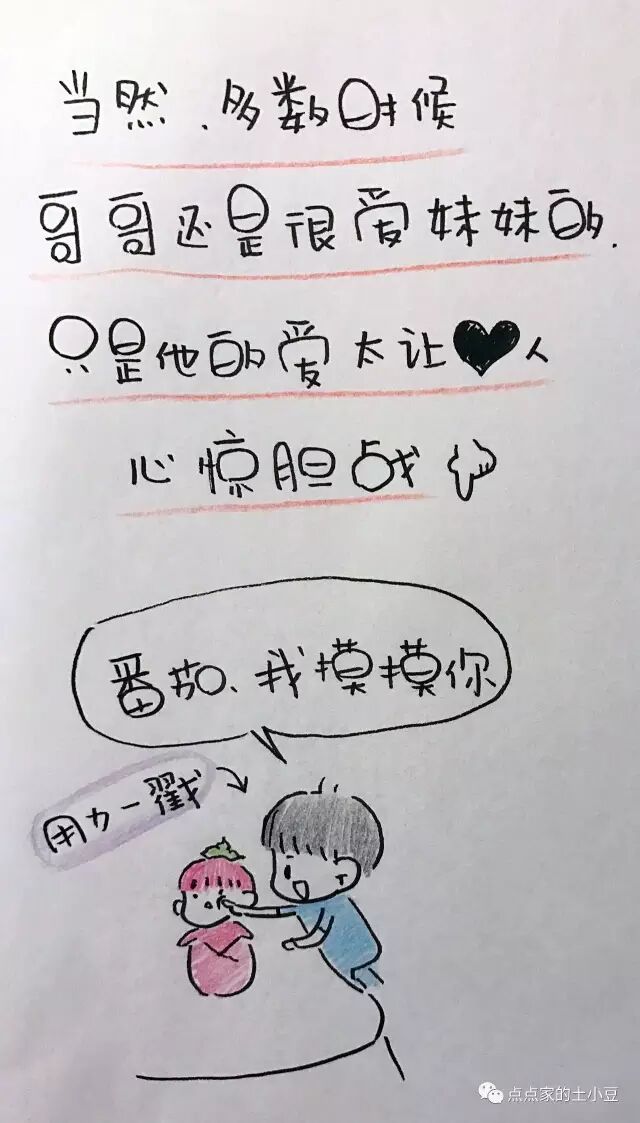 当然、多数时候
哥哥还是很爱妹妹的.
只是他的爱太让人
心惊胆战
番茄、我摸摸你
用力一戳
点点家的土小豆